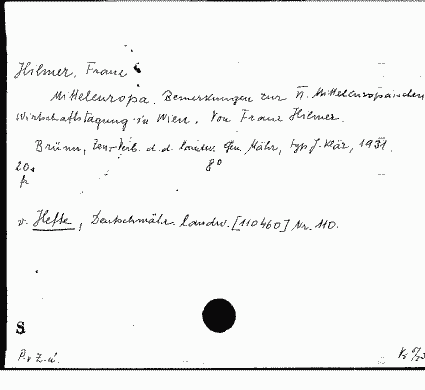 Hilmer, Franz
Mitteleuropa. Bemerkungen zur VI. Mitteleuropäischen
Wirtschaftstagung in Wien. Von Franz Hilmer.
Brünn, Zen.-Verb. d. d. landw. Gen. Mähr., typ. J. Klär, 1931.
20. 8°
fr
v. Hefte, Deutschmähr. landw. [110460] Nr. 110.
S